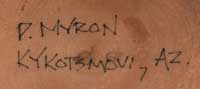 P. MYRON
KYKOTSMOVI, AZ.